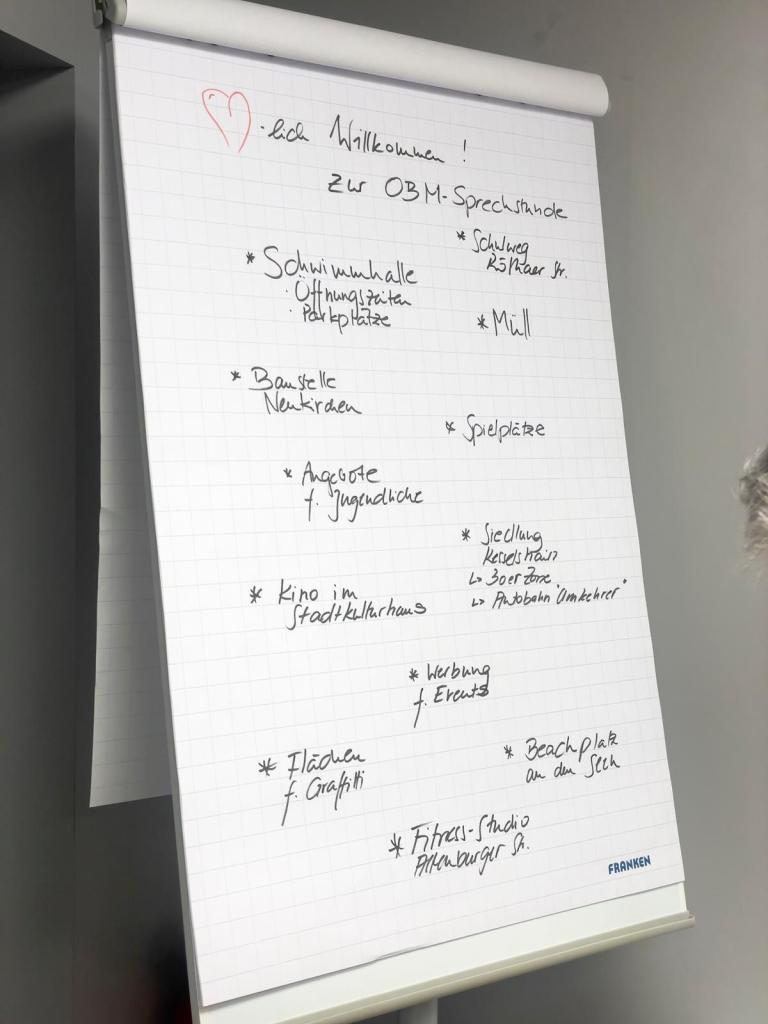 lich Willkommen!
Zur OBM-Sprechstunde
* Schulweg
Röthaer Str.
* Schwimmhalle
· Öffnungszeiten
· Parkplätze
* Müll
* Baustelle
Neukirchen
* Spielplätze
* Angebote
f. Jugendliche
* Siedlung
Kesselshain
↳ 30er Zone
↳ Autobahn "Umkehrer"
* Kino im
Stadtkulturhaus
* Werbung
f. Events
* Flächen
f. Graffitti
* Beachplatz
an den Seen
* Fitness-Studio
Altenburger Str.
FRANKEN